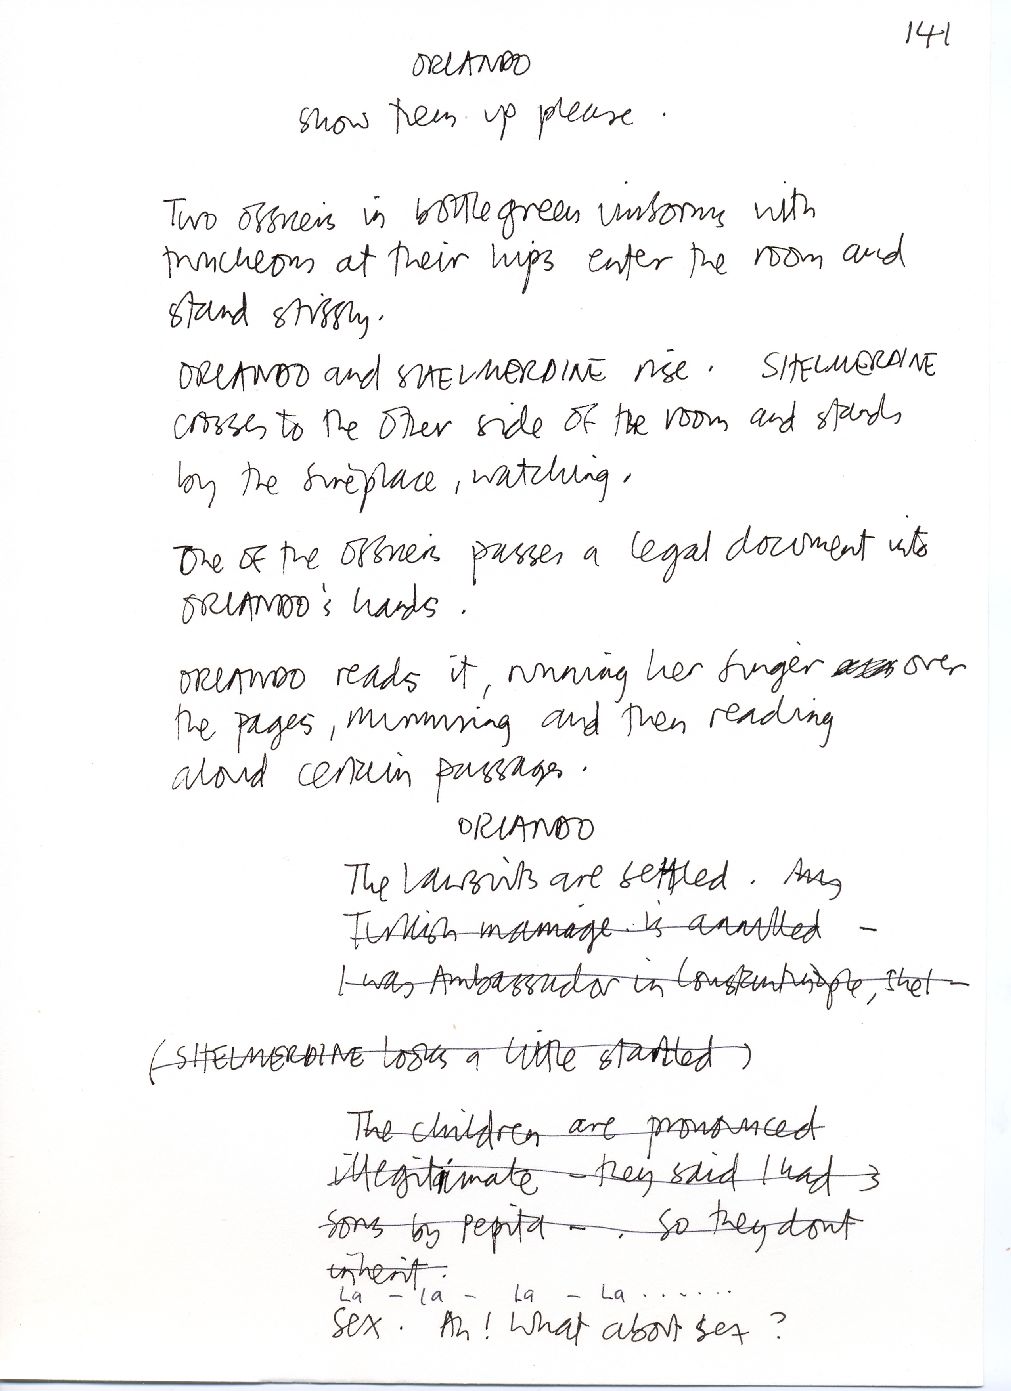 141
ORLANDO
Show them up please.
Two officers in bottlegreen uniforms with
truncheons at their hips enter the room and
stand stiffly.
ORLANDO and SHELMERDINE rise. SHELMERDINE
crosses to the other side of the room and stands
by the fireplace, watching.
One of the officers passes a legal document into
ORLANDO's hands.
ORLANDO reads it, running her finger over
the pages, murmuring and then reading
aloud certain passages.
ORLANDO
The lawsuits are settled. Any
Turkish marriage is annulled -
I was Ambassador in Constantinople, Shel -
(SHELMERDINE looks a little startled)
The children are pronounced
illegitimate - they said I had 3
sons by Pepita - . So they dont
inherit.
La - la - La - La ......
Sex. Ah! What about sex?